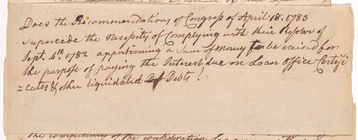 Does the Recommendations of Congress of April 18. 1783
supercede the necessity of Complying with their Resolves of
Sept. 4th. 1782 apportioning a Sum of Money to be raised for
the purpose of paying the Interest due on Loan Office Certifi
=cates & other liquidated Debts?